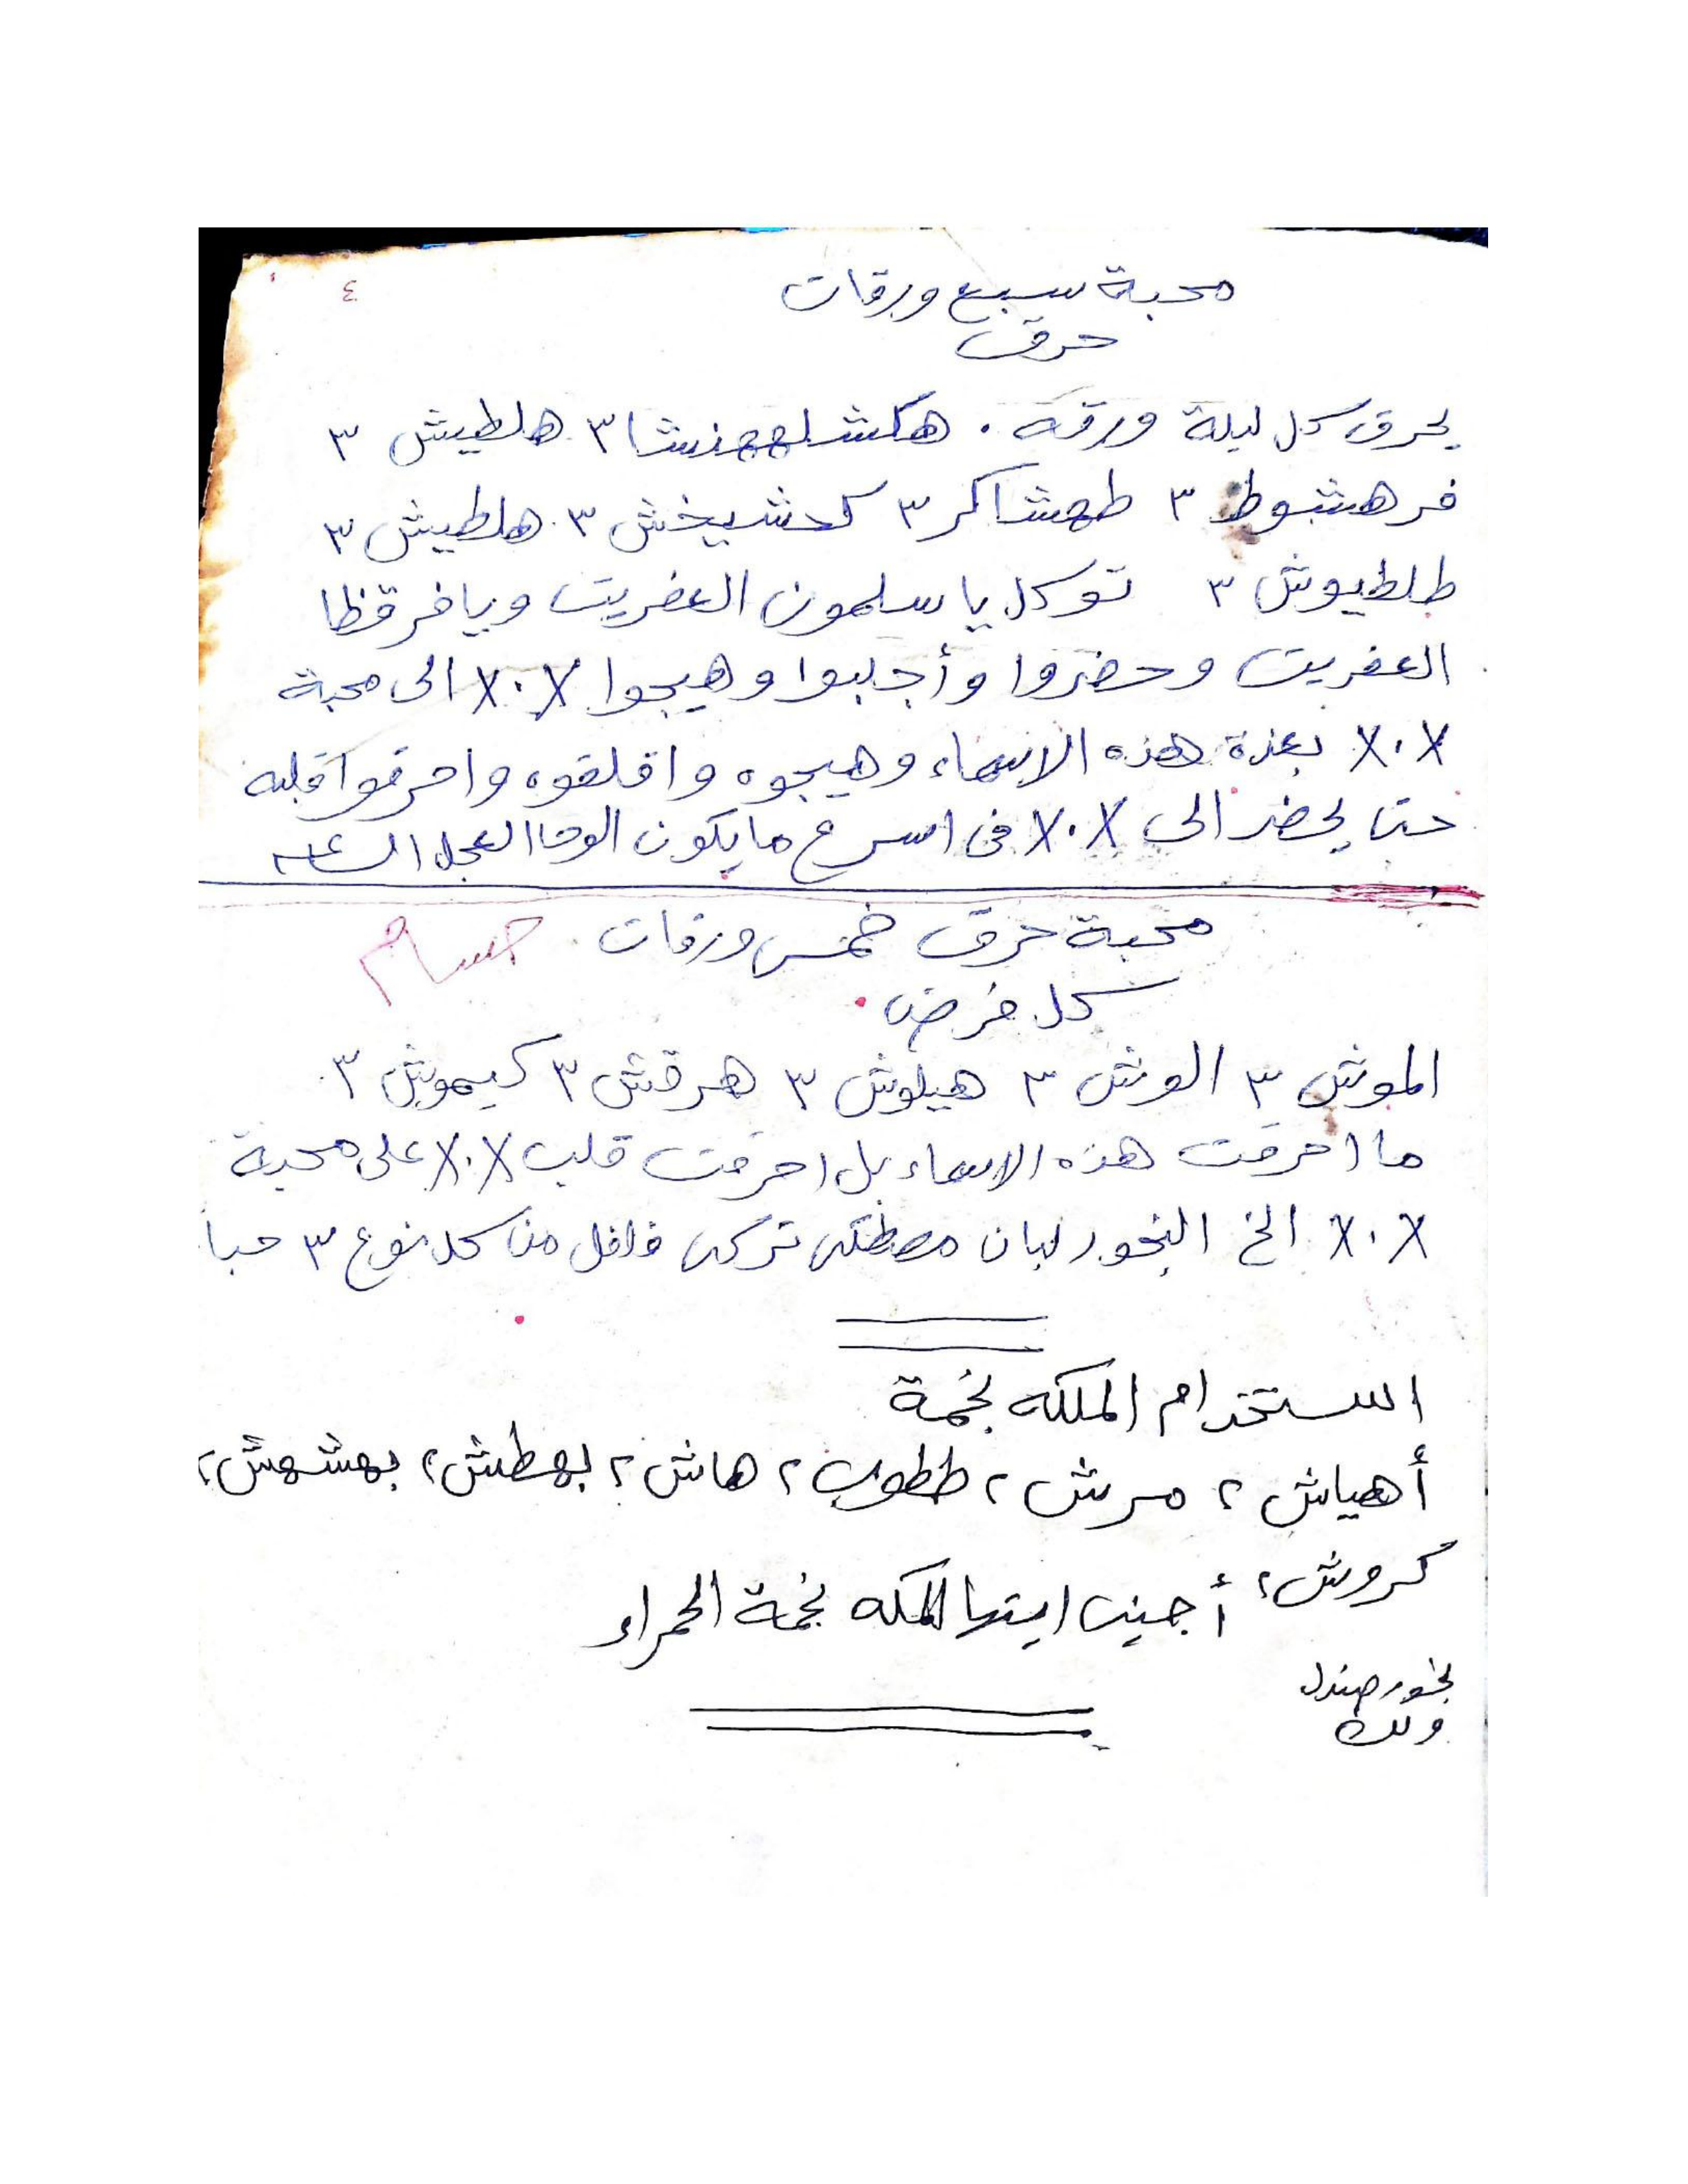 ٤
محبة سبع ورقات
حرق
يحرق كل ليلة ورقه . هكشلههنشا ٣ هلطيش ٣
فرهشبوط ٣ طهشاكر ٣ كدشيخش ٣ هلطيش ٣
طلطيوش ٣ توكل يا سلمون العفريت ويا فرقظا
العفريت وحضروا وأجلبوا وهيجوا X.X الى محبة
X.X بعزة هذه الاسماء وهيجوه واقلقوه واحرقوا قلبه
حتا يحضر الى X.X فى اسرع ما يكون الوحا العجل الساعة
محبة حرق خمس ورقات حسام
كل فرض
الموش ٣ الوش ٣ هيلوش ٣ هرقش ٣ كيموش ٣
ما احرقت هذه الاسماء بل احرقت قلب X.X على محبة
X.X الخ البخور لبان مصطكى تركى فلفل من كل نوع ٣ حبا
استخدام الملكه نجمة
أهياش ٢ مرش ٢ ططوب ٢ هاش ٢ بهطش ٢ بهشهش ٢
كروش ٢ أجيبى ايتها الملكه نجمة الحمراء
بخور صندل